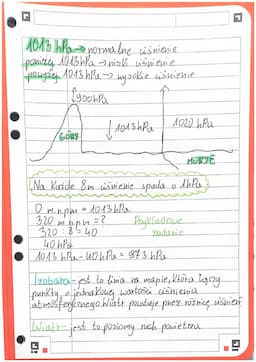 1013 hPa → normalne ciśnienie
poniżej 1013 hPa → niskie ciśnienie
powyżej 1013 hPa → wysokie ciśnienie
900 hPa
↓ 1013 hPa
1020 hPa
GÓRY
MORZE
Na każde 8m ciśnienie spada o 1hPa
0 m.n.p.m = 1013 hPa
320 m n.p.m = ?
Przykładowe
320 : 8 = 40
zadanie
40 hPa
1013 hPa - 40 hPa = 973 hPa
Izobara - jest to linia na mapie, która łączy
punkty o jednakowej wartości ciśnienia
atmosferycznego. Wiatr powstaje przez różnicę ciśnień
Wiatr - jest to poziomy ruch powietrza